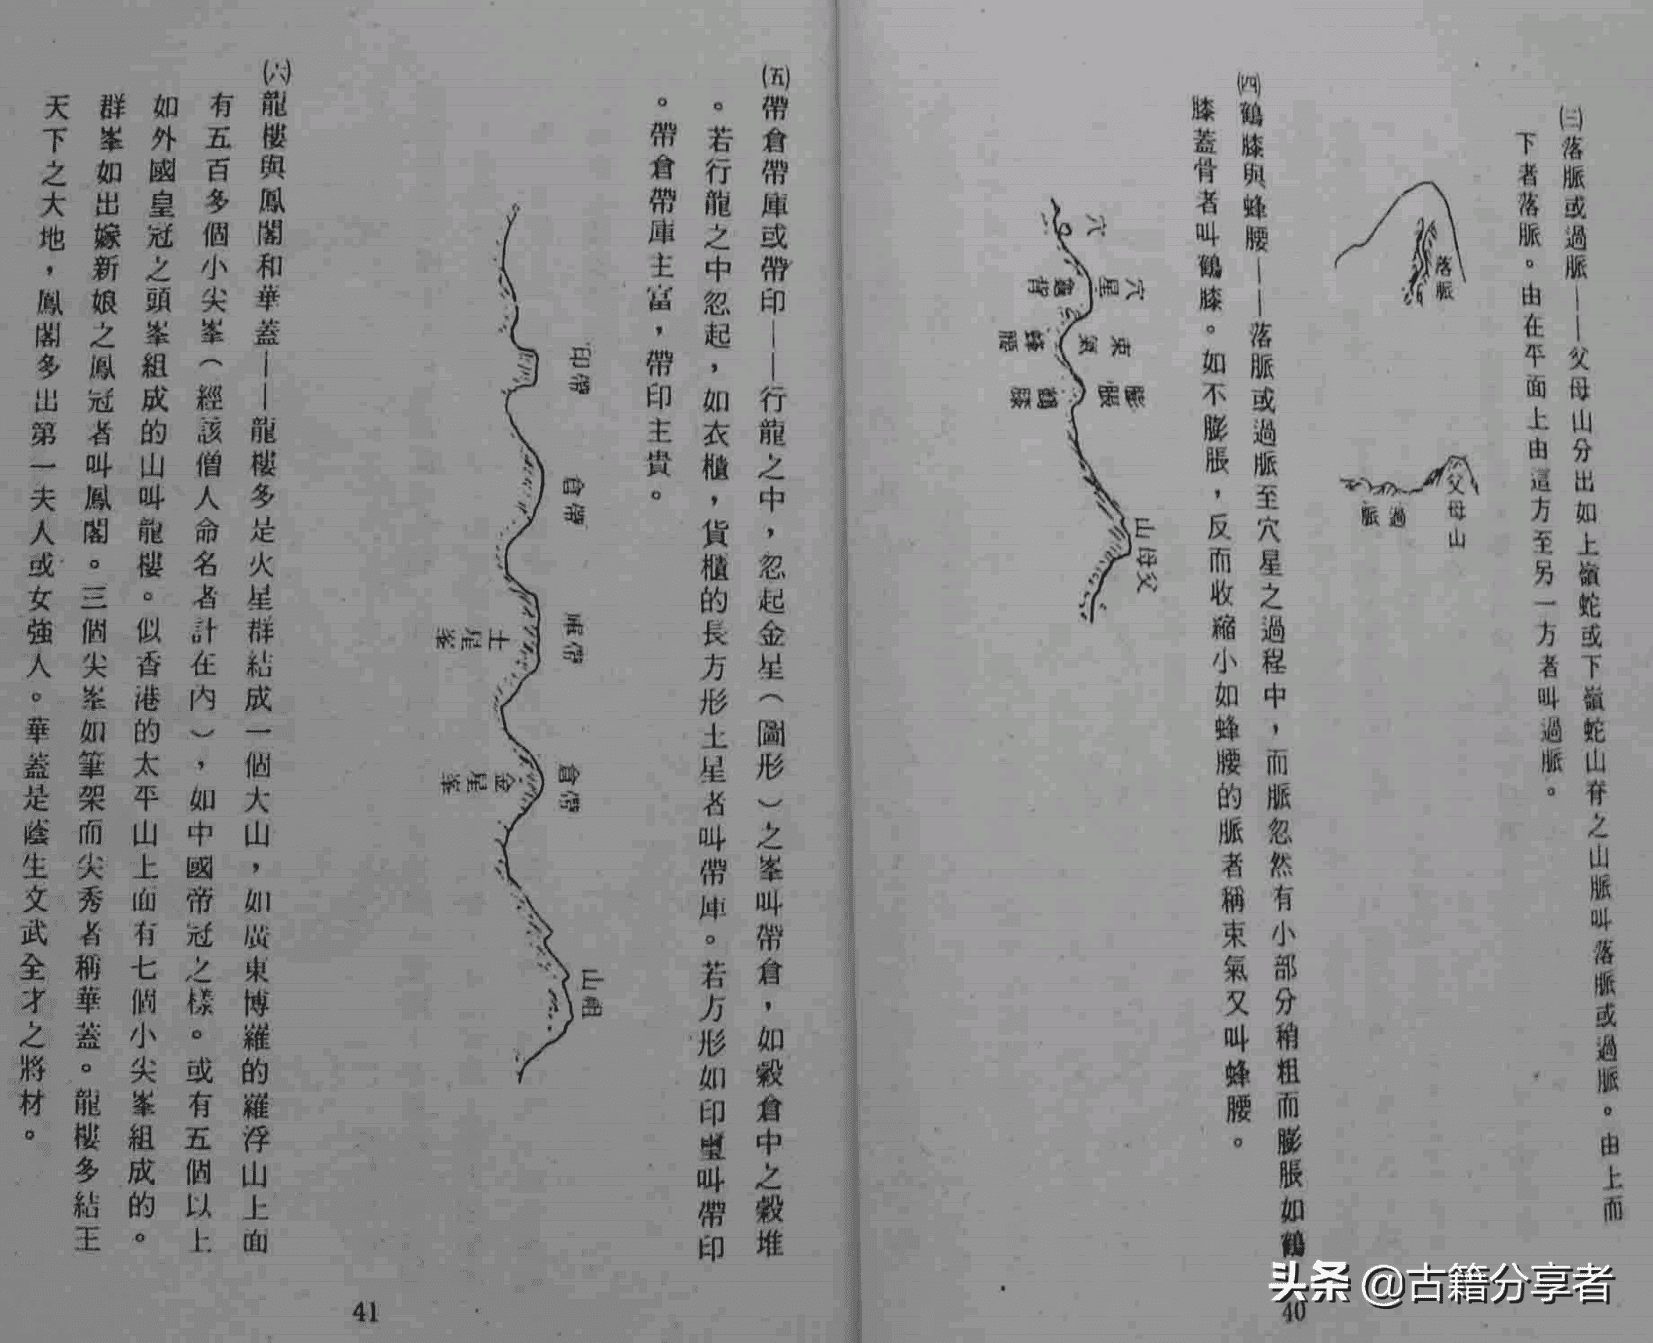 ㈢落脈或過脈——父母山分出如上嶺蛇或下嶺蛇山脊之山脈叫落脈或過脈。由上而
下者落脈。由在平面上由這方至另一方者叫過脈。
落脈
父母山
過脈
㈣鶴膝與蜂腰——落脈或過脈至穴星之過程中，而脈忽然有小部分稍粗而膨脹如鶴
膝蓋骨者叫鶴膝。如不膨脹，反而收縮小如蜂腰的脈者稱束氣又叫蜂腰。
父母山
膨脹
鶴膝
束氣
蜂腰
穴星
穴
40
㈤帶倉帶庫或帶印——行龍之中，忽起金星（圖形）之峯叫帶倉，如穀倉中之穀堆
。若行龍之中忽起，如衣櫃，貨櫃的長方形土星者叫帶庫。若方形如印璽叫帶印
。帶倉帶庫主富，帶印主貴。
帶印
帶倉
帶庫
土星峯
帶倉
金星峯
祖山
㈥龍樓與鳳閣和華蓋——龍樓多是火星群結成一個大山，如廣東博羅的羅浮山上面
有五百多個小尖峯（經該僧人命名者計在內），如中國帝冠之樣。或有五個以上
如外國皇冠之頭峯組成的山叫龍樓。似香港的太平山上面有七個小尖峯組成的。
群峯如出嫁新娘之鳳冠者叫鳳閣。三個尖峯如筆架而尖秀者稱華蓋。龍樓多結王
天下之大地，鳳閣多出第一夫人或女強人。華蓋是蔭生文武全才之將材。
41
头条 @古籍分享者